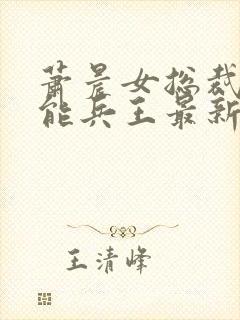 萧晨女总裁
能兵王最新
王清峰